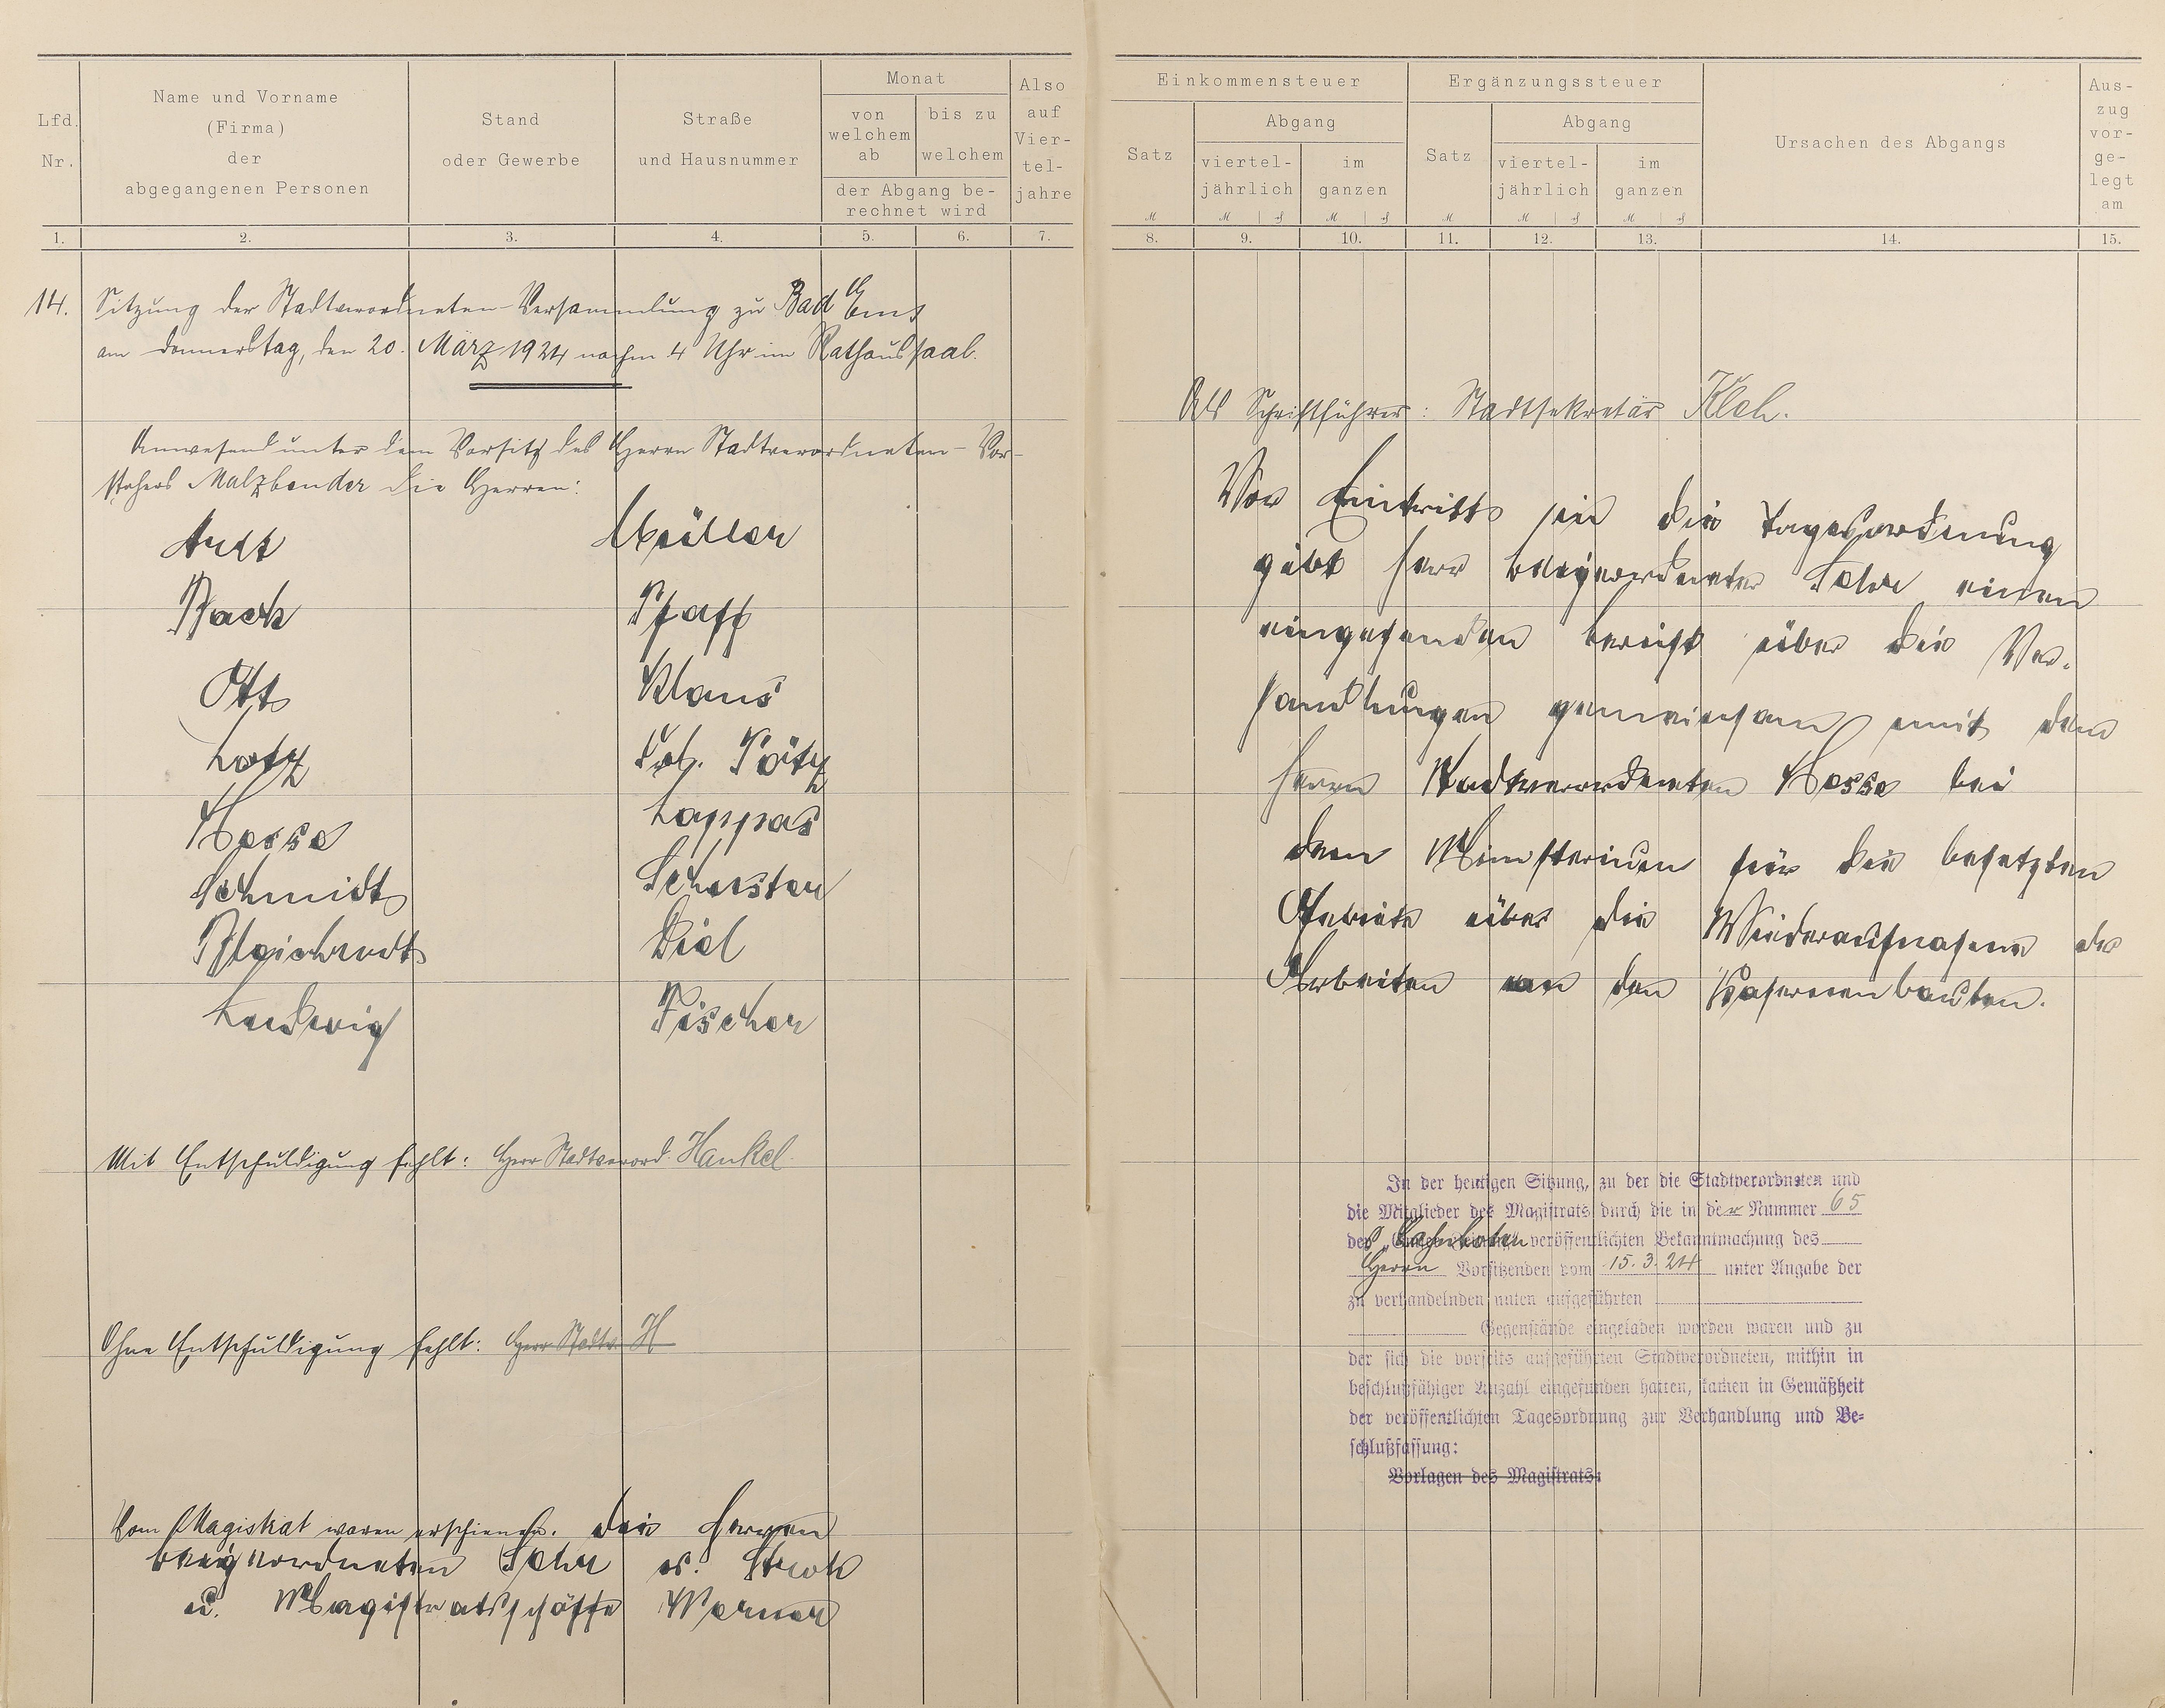 Lfd. Nr.
Name und Vorname
(Firma)
der
abgegangenen Personen
Stand
oder Gewerbe
Straße
und Hausnummer
Monat
von welchem ab
bis zu welchem
der Abgang be-
rechnet wird
Also auf Vier-tel-jahre
1. 2. 3. 4. 5. 6. 7.
14. Sitzung der Stadtverordneten-Versammlung zu Bad Ems
am Donnerstag, den 20. März 1924 nachm 4 Uhr im Rathaussaal.
Anwesend unter dem Vorsitz des Herrn Stadtverordneten-Vor-
stehers Malzbender die Herren:
Müller
Pfaff
Otto
Klaus
Lotz
Lappas
Schmidt
Schuster
Diel
Ludwig
Fischer
Mit Entschuldigung fehlt: Herr Stadtverord. Hankel
Ohne Entschuldigung fehlt: Herr Stadtv. H
Vom Magistrat waren erschienen. die Herren
Beigeordneten
u. Magistratsschöffe Werner
Einkommensteuer
Satz
Abgang
viertel-
jährlich
im
ganzen
Ergänzungssteuer
Satz
Abgang
viertel-
jährlich
im
ganzen
Ursachen des Abgangs
Aus-
zug
vor-
ge-
legt
am
M M ₰ M ₰ M M ₰ M ₰
8. 9. 10. 11. 12. 13. 14. 15.
Als Schriftführer: Stadtsekretär
Vor Eintritt in die Tagesordnung
gibt Herr Beigeordneter einen
eingehenden Bericht über die Ver-
handlungen gemeinsam mit dem
Herrn Stadtverordneten bei
dem Ministerium für die besetzten
Gebiete über die Wiederaufnahme der
Arbeiten an den Kasernenbauten.
In der heutigen Sitzung, zu der die Stadtverordneten und
die Mitglieder des Magistrats durch die in der Nummer 65
des "Lahnboten" veröffentlichten Bekanntmachung des
Herrn Vorsitzenden vom 15.3.24 unter Angabe der
zu verhandelnden unten aufgeführten
Gegenstände eingeladen worden waren und zu
der sich die vorseits aufgeführten Stadtverordneten, mithin in
beschlußfähiger Anzahl eingefunden hatten, kamen in Gemäßheit
der veröffentlichten Tagesordnung zur Verhandlung und Be-
schlußfassung:
Vorlagen des Magistrats: